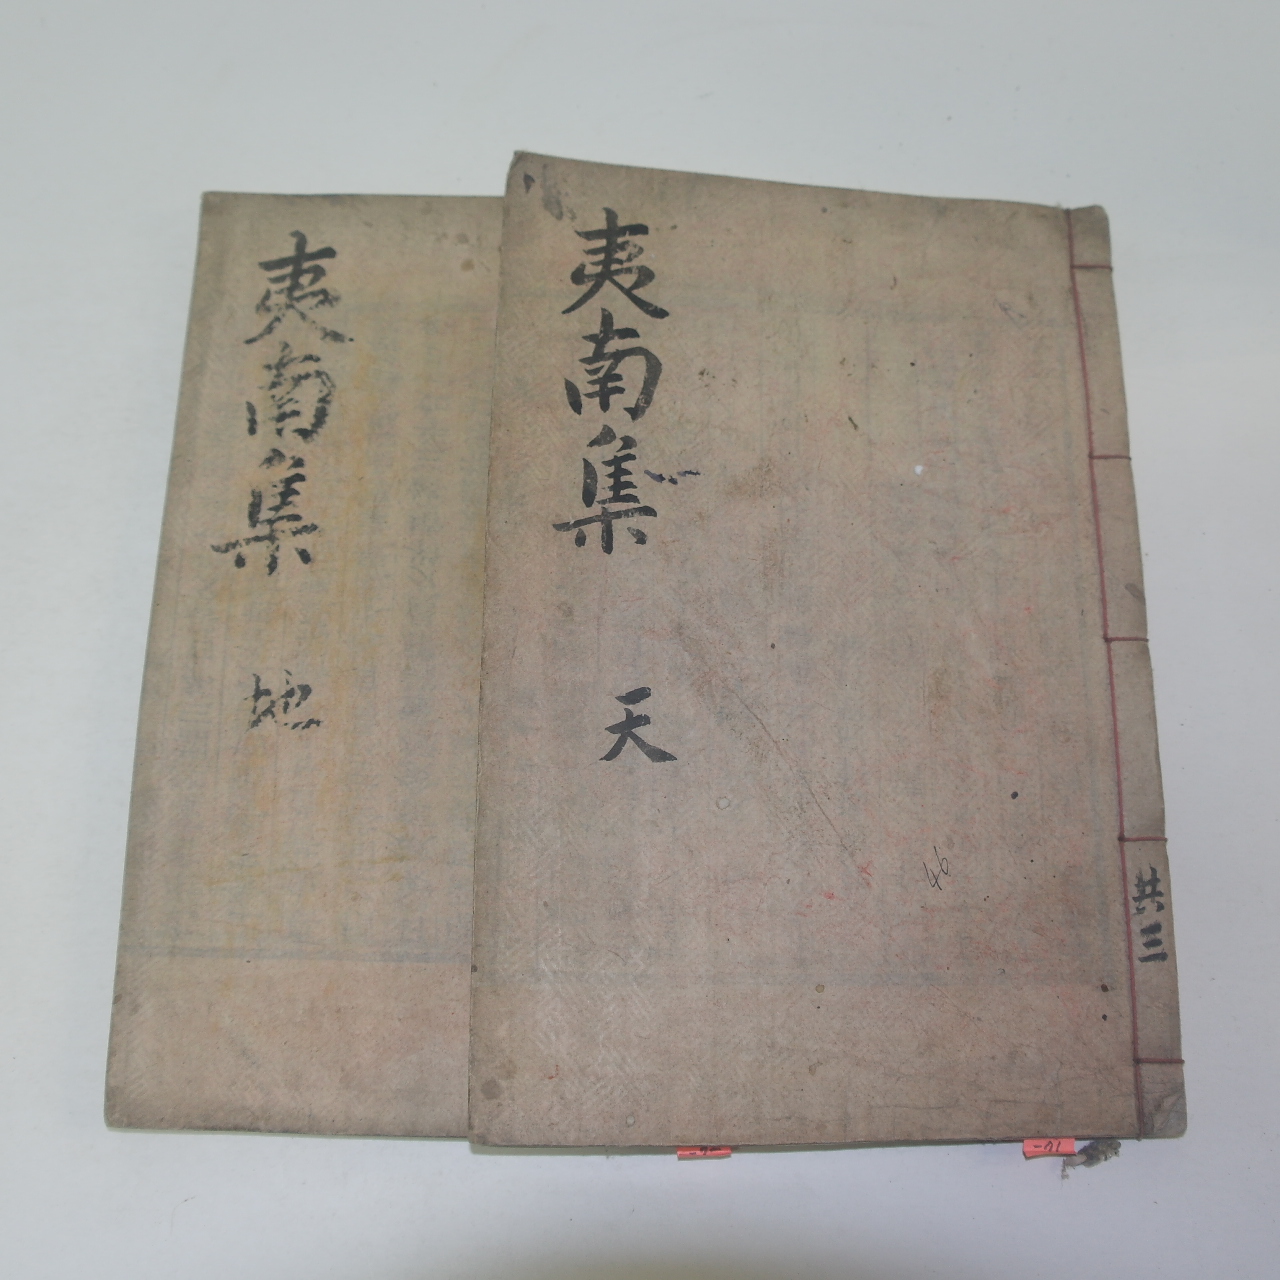 夷南集 天
共三
46
夷南集 地